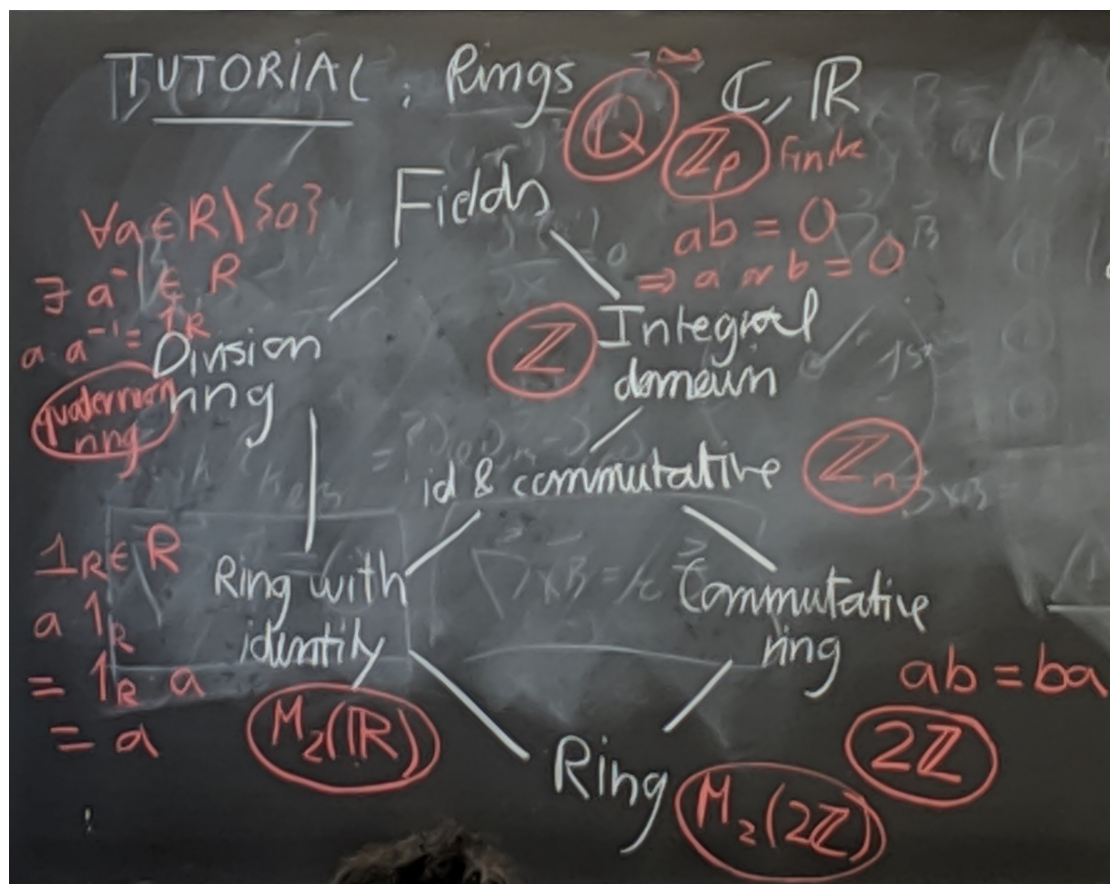 TUTORIAL : Rings
ℚ ℂ, ℝ
ℤₚ finite
Fields
∀a∈R\{0}
∃ a⁻¹ ∈ R
a·a⁻¹=1_R
ab = 0
⇒ a or b = 0
Division
ring
quaternion
ring
ℤ
Integral
domain
id & commutative
ℤₙ
1_R∈R
a 1_R
= 1_R a
= a
Ring with
identity
M₂(ℝ)
Commutative
ring
ab = ba
2ℤ
Ring
M₂(2ℤ)